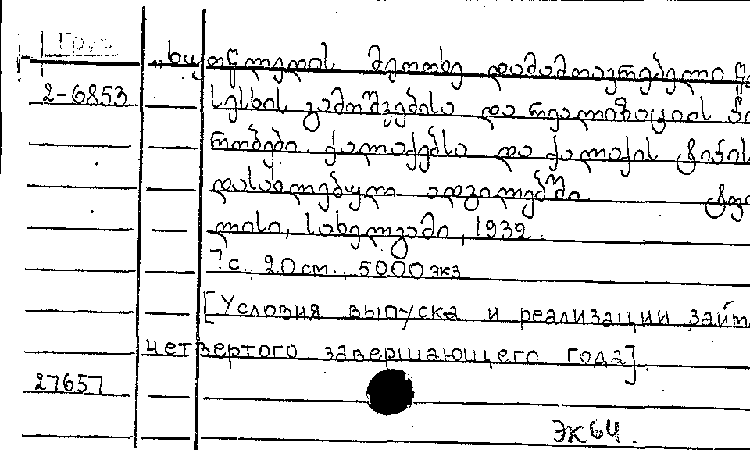 Груз.
„ხუთწლედის მეოთხე დამამთავრებელი წ
2-6853 სესხის გამოშვებისა და რეალიზაციის პი
რობები ქალაქებსა და ქალაქის ტიპის
დასახლებულ ადგილებში ტფი
ლისი, სახელგამი, 1932.
7 с. 20 cm. 5000 экз
[Условия выпуска и реализации займ
четвертого завершающего года].
27657
ЭК 64.